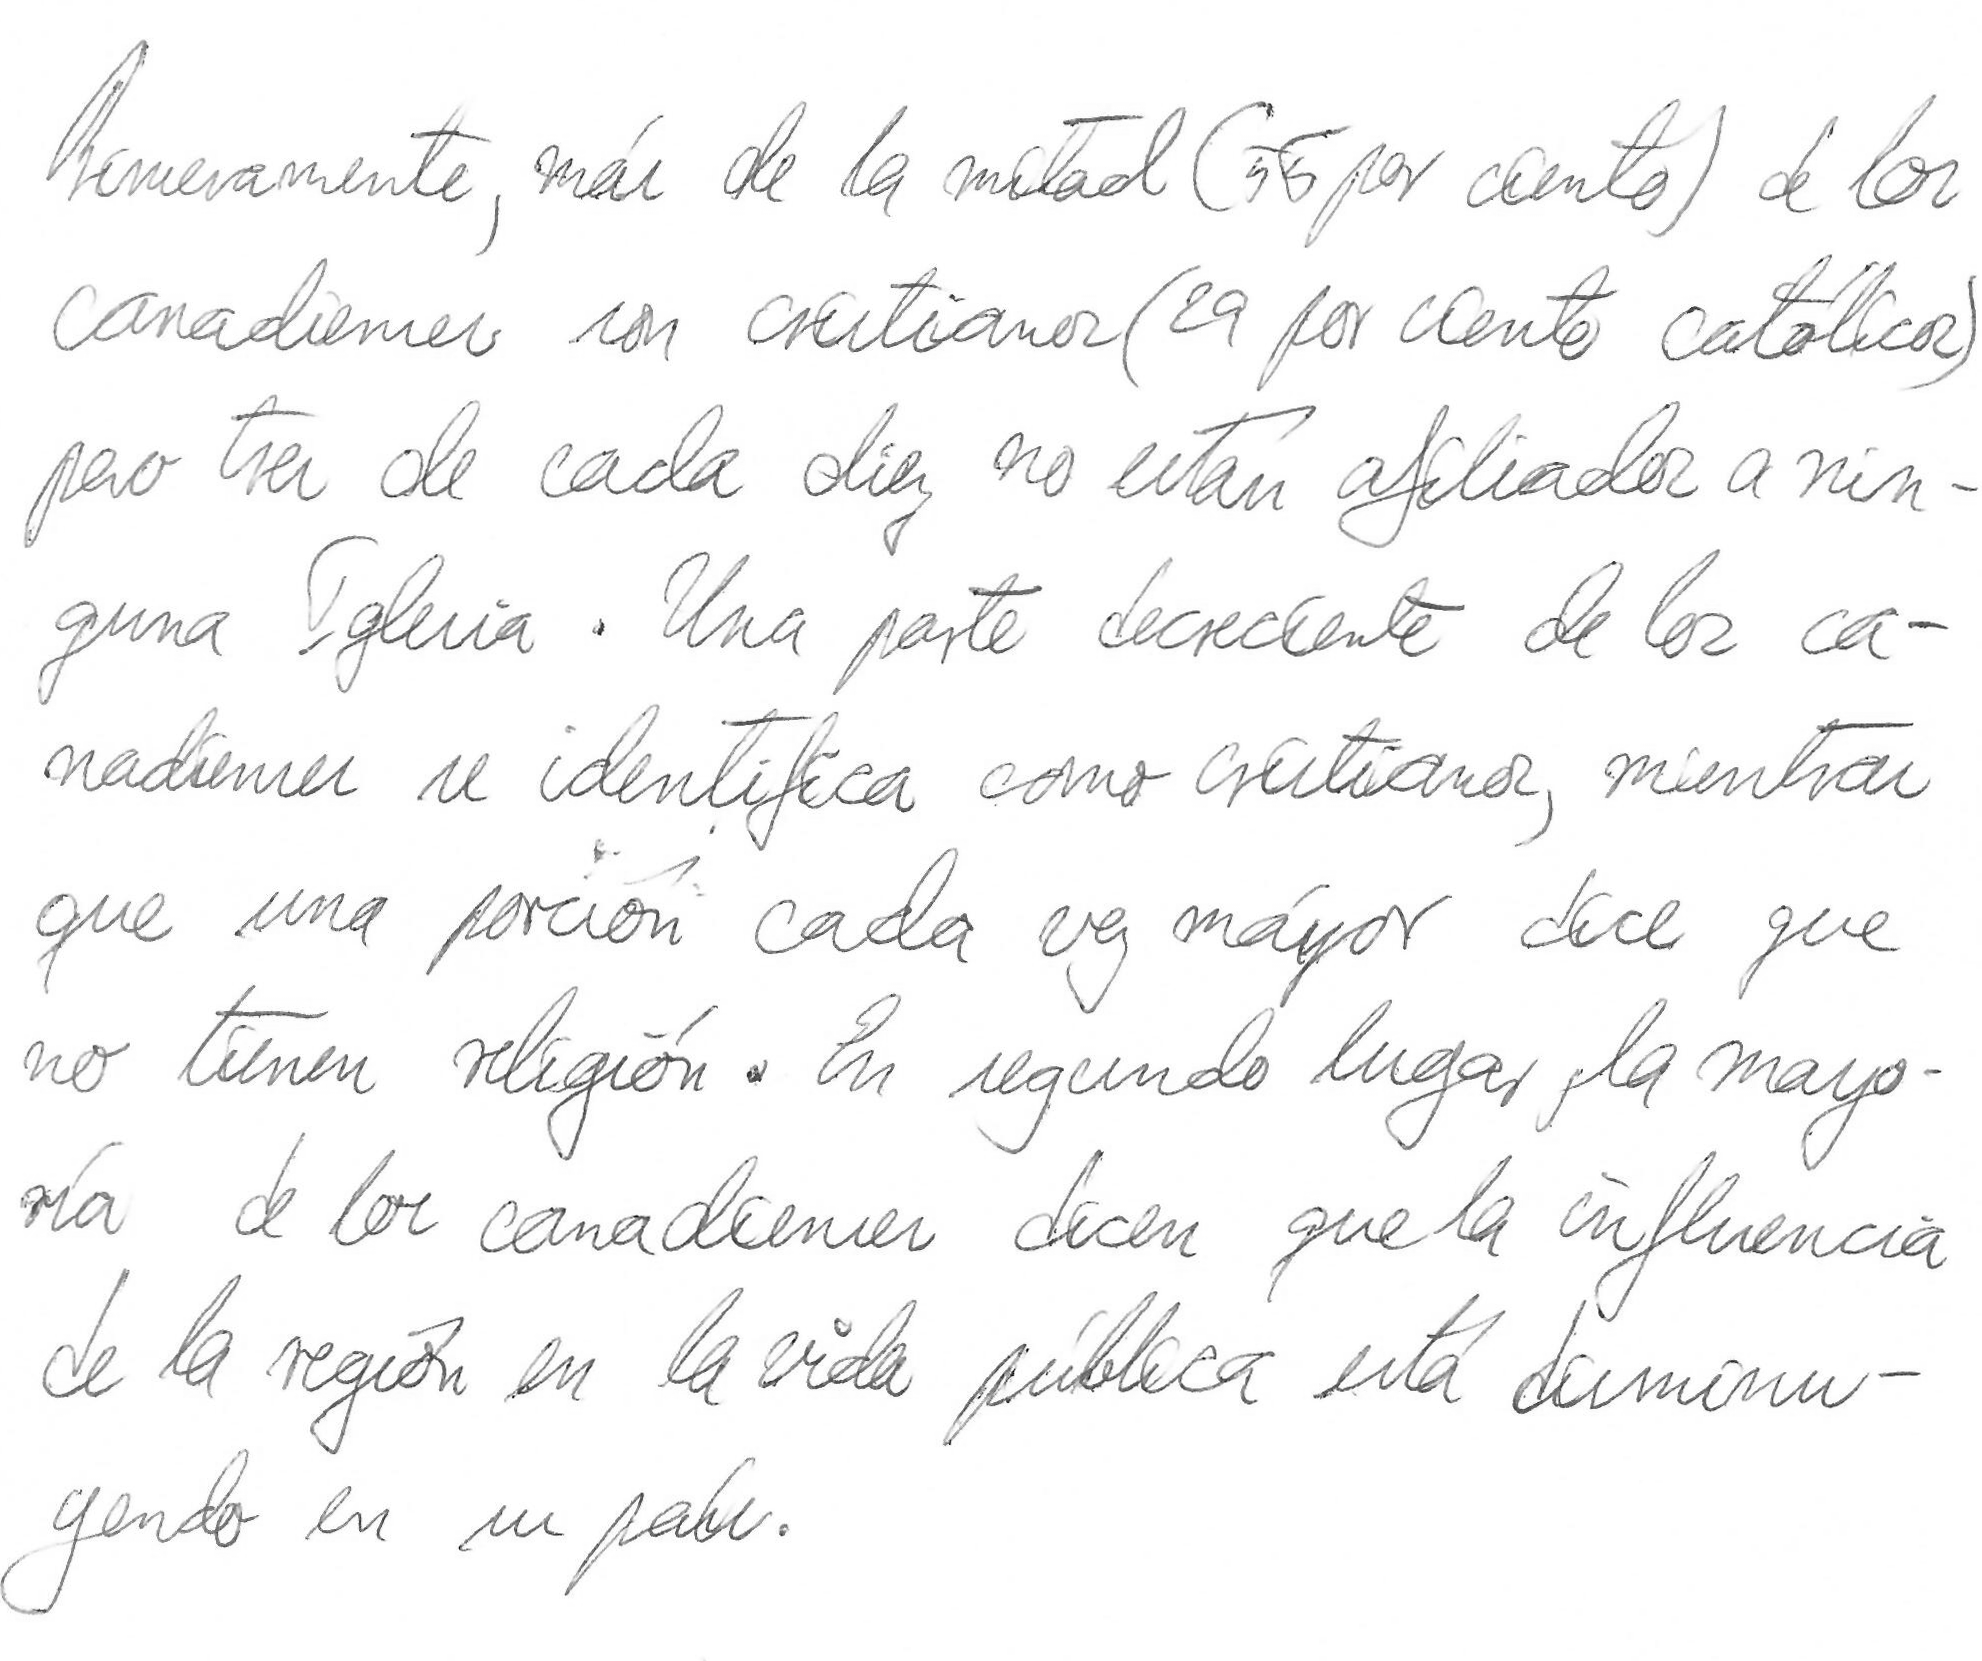 Primeramente, más de la mitad (55 por ciento) de los
canadienses son cristianos (29 por ciento católicos)
pero tres de cada diez no están afiliados a nin-
guna Iglesia. Una parte decreciente de los ca-
nadienses se identifica como cristianos, mientras
que una porción cada vez máyor dice que
no tienen religión. En segundo lugar, la mayo-
ría de los canadienses dicen que la influencia
de la región en la vida pública está disminu-
yendo en su país.